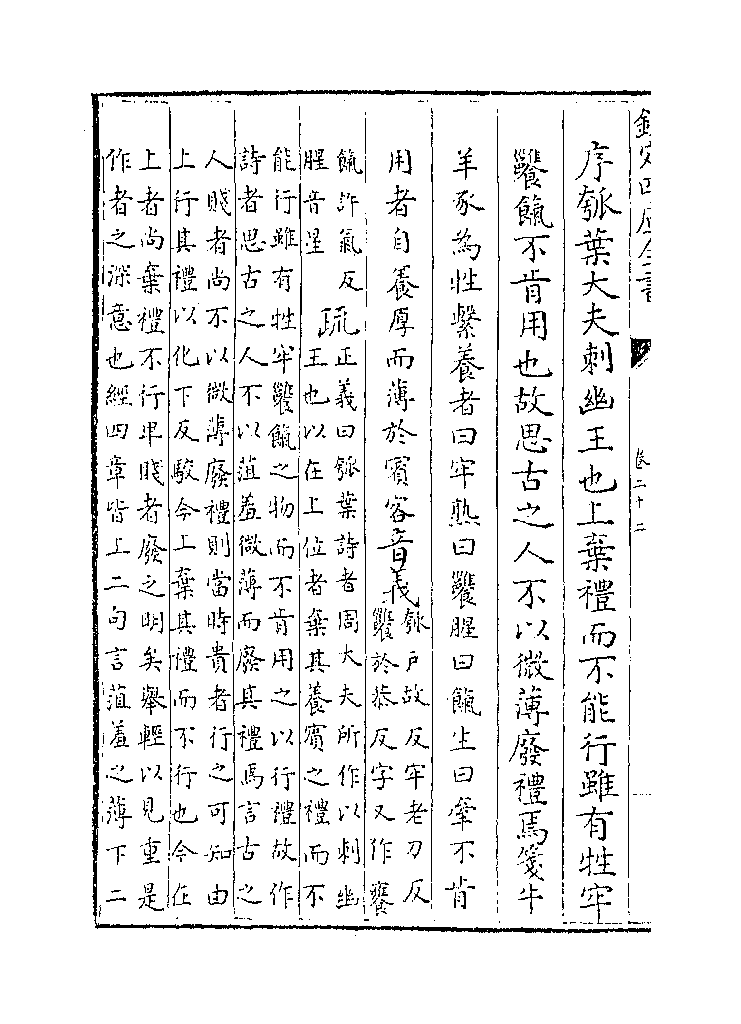 欽定四庫全書 卷二十二
序瓠葉大夫刺幽王也上棄禮而不能行雖有牲牢
饔餼不肯用也故思古之人不以微薄廢禮焉箋牛
羊豕為牲繫養者曰牢熟曰饔腥曰餼生曰牽不肯
用者自養厚而薄於賓客音義
瓠戶故反牢老刀反
饔於恭反字又作饔
餼許氣反
腥音星
疏
正義曰瓠葉詩者周大夫所作以刺幽
王也以在上位者棄其養賓之禮而不
能行雖有牲牢饔餼之物而不肯用之以行禮故作
詩者思古之人不以菹羞微薄而廢其禮焉言古之
人賤者尚不以微薄廢禮則當時貴者行之可知由
上行其禮以化下反駮今上棄其禮而不行也今在
上者尚棄禮不行卑賤者廢之明矣舉輕以見重是
作者之深意也經四章皆上二句言菹羞之薄下二